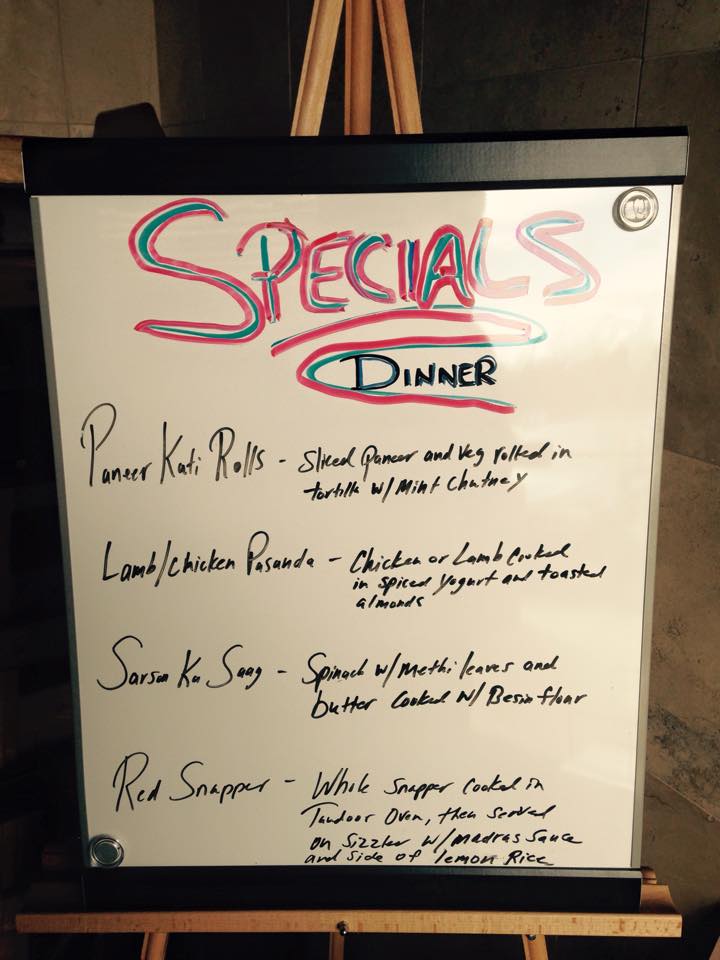 SPECIALS
DINNER
Paneer Kati Rolls - Sliced Paneer and Veg rolled in
tortilla w/ Mint Chutney
Lamb/Chicken Pasanda - Chicken or Lamb Cooked
in spiced yogurt and toasted
almonds
Sarson Ka Saag - Spinach w/ Methi leaves and
butter Cooked w/ Besin flour
Red Snapper - Whole Snapper Cooked in
Tandoor Oven, then served
on Sizzler w/ madras sauce
and side of lemon Rice